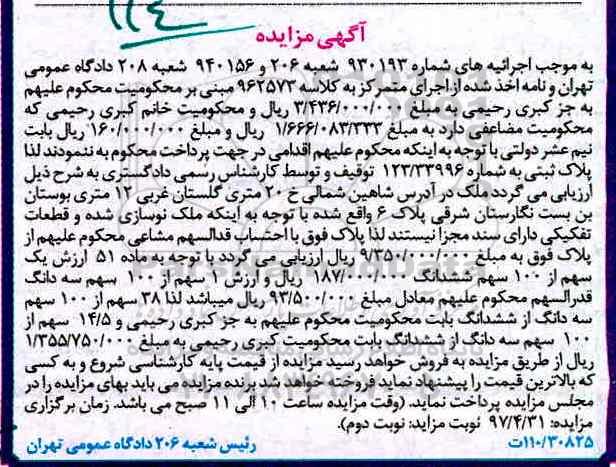 ۱۱۴
آگهی مزایده
به موجب اجرائیه های شماره ۹۳۰۱۹۳ شعبه ۲۰۶ و ۹۴۰۱۵۶ شعبه ۲۰۸ دادگاه عمومی
تهران و نامه اخذ شده از اجرای متمرکز به کلاسه ۹۶۲۵۷۳ مبنی بر محکومیت محکوم علیهم
به جز کبری رحیمی به مبلغ ۳/۴۳۶/۰۰۰/۰۰۰ ریال و محکومیت خانم کبری رحیمی که
محکومیت مضاعفی دارد به مبلغ ۱/۶۶۶/۰۸۳/۳۳۳ ریال و مبلغ ۱۶۰/۰۰۰/۰۰۰ ریال بابت
نیم عشر دولتی با توجه به اینکه محکوم علیهم اقدامی در جهت پرداخت محکوم به ننمودند لذا
پلاک ثبتی به شماره ۱۲۳/۳۳۹۹۶ توقیف و توسط کارشناس رسمی دادگستری به شرح ذیل
ارزیابی می گردد ملک در آدرس شاهین شمالی خ ۲۰ متری گلستان غربی ۱۲ متری بوستان
بن بست نگارستان شرقی پلاک ۶ واقع شده با توجه به اینکه ملک نوسازی شده و قطعات
تفکیکی دارای سند مجزا نیستند لذا پلاک فوق با احتساب قدالسهم مشاعی محکوم علیهم از
پلاک فوق به مبلغ ۹/۳۵۰/۰۰۰/۰۰۰ ریال ارزیابی می گردد با توجه به ماده ۵۱ ارزش یک
سهم از ۱۰۰ سهم ششدانگ ۱۸۷/۰۰۰/۰۰۰ ریال و ارزش ۱ سهم از ۱۰۰ سهم سه دانگ
قدرالسهم محکوم علیهم معادل مبلغ ۹۳/۵۰۰/۰۰۰ ریال میباشد لذا ۳۸ سهم از ۱۰۰ سهم
سه دانگ از ششدانگ بابت محکومیت محکوم علیهم به جز کبری رحیمی و ۱۴/۵ سهم از
۱۰۰ سهم سه دانگ از ششدانگ بابت محکومیت کبری رحیمی به مبلغ ۱/۳۵۵/۷۵۰/۰۰۰
ریال از طریق مزایده به فروش خواهد رسید مزایده از قیمت پایه کارشناسی شروع و به کسی
که بالاترین قیمت را پیشنهاد نماید فروخته خواهد شد برنده مزایده می باید بهای مزایده را در
مجلس مزایده پرداخت نماید. (وقت مزایده ساعت ۱۰ الی ۱۱ صبح می باشد. زمان برگزاری
مزایده: ۹۷/۴/۳۱ نوبت مزاید: نوبت دوم).
۱۱۰/۳۰۸۲۵ت رئیس شعبه ۲۰۶ دادگاه عمومی تهران